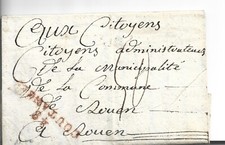 Aux Citoyens
Citoyens administrateurs
de la Municipalité
de la Commune
de Rouen
a Rouen